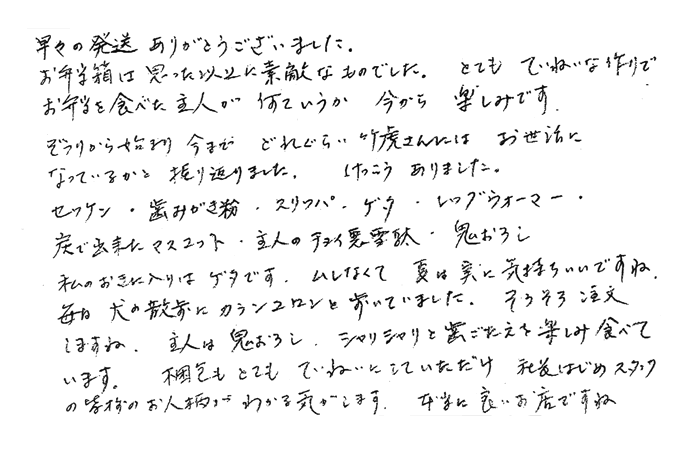 早々の発送 ありがとうございました。
お弁当箱は思った以上に素敵なものでした。 とても ていねいな作りで
お弁当を食べた主人が 何ていうか 今から 楽しみです。
ぞうりから始まり 今まで どれぐらい 竹虎さんには お世話に
なっているかと 振り返りました。 けっこう ありました。
セッケン・歯みがき粉・スリッパ・ゲタ・レッグウォーマー・
炭で出来たマスコット・主人のチョイ悪雪駄・鬼おろし
私のおきに入りは ゲタです。 ムレなくて 夏は 実に 気持ちいいですね。
毎日 犬の散歩に カランコロンと 歩いていました。 そろそろ 注文
しますね。 主人は 鬼おろし。 シャリシャリと 歯ごたえを 楽しみ 食べて
います。 梱包も とても ていねいに していただけ 社長はじめ スタッフ
の皆様の お人柄が わかる 気がします。 本当に 良い お店ですね